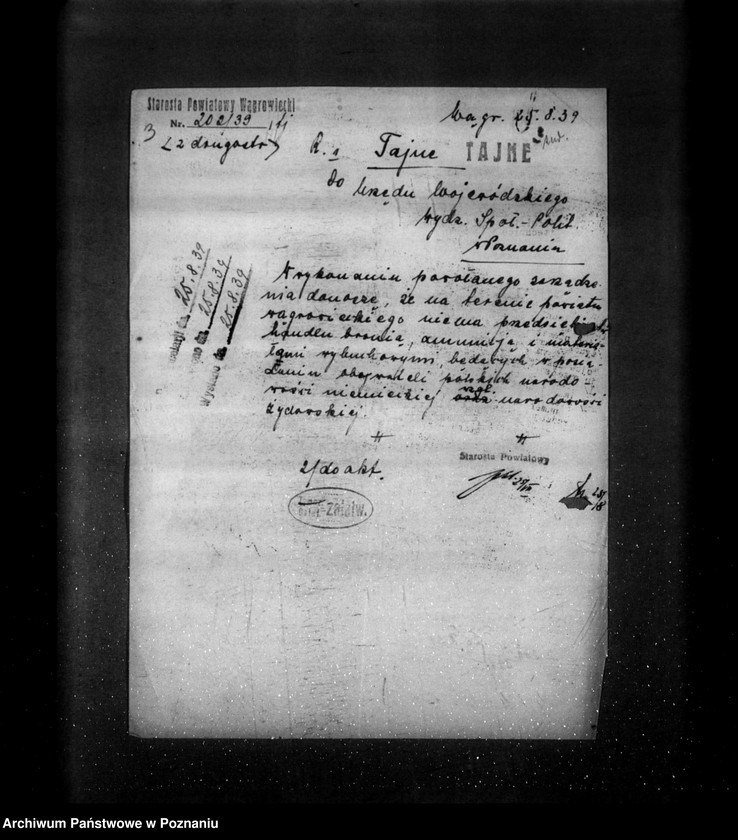 Starosta Powiatowy Wągrowiecki
Nr. 202/39 tj
Wągr. 25. 8. 39
3
(2 drugostr)
R. 1 Tajne TAJNE
do Urzędu Wojewódzkiego
Wydz. Społ.-Polit.
w Poznaniu
W wykonaniu powołanego zarządze-
nia donoszę, że na terenie powiatu
wągrowieckiego niema przedsięb
handlu bronią, amunicją i materia-
łami wybuchowymi, będących w posia-
daniu obywateli polskich narodo-
wości niemieckiej oraz narodowości
żydowskiej.
25.8.39
25.8.39
25.8.39
2/ do akt.
Starosta Powiatowy
załatw.
Archiwum Państwowe w Poznaniu